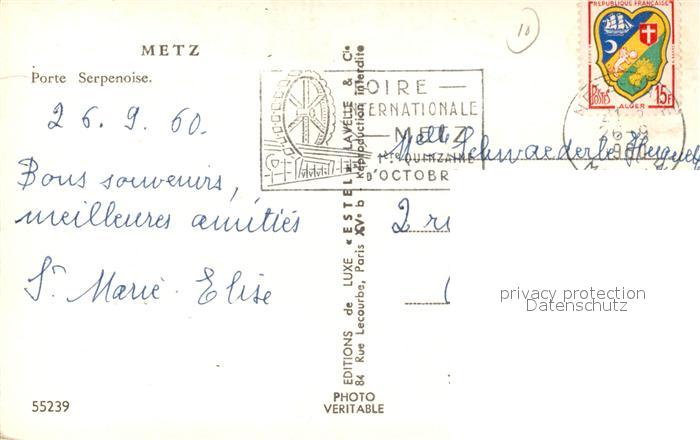 METZ
Porte Serpenoise.
26.9.60.
Bons souvenirs,
meilleures amitiés
Sr Marie-Elise
55239
EDITIONS de LUXE « ESTEL » LAVELLE & Cie
84 Rue Lecourbe, Paris XVe Reproduction interdite
PHOTO
VERITABLE
10
OIRE
TERNATIONALE
METZ
1ère QUINZAINE
D'OCTOBR
REPUBLIQUE FRANÇAISE
POSTES
ALGER
15F
26-9
Melle Schwaederlé Huguet
2 ru
privacy protection
Datenschutz